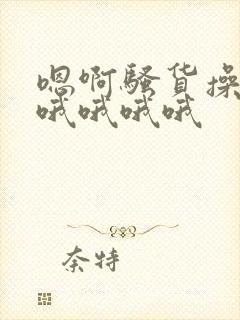 嗯啊骚货操
哦哦哦哦
奈特